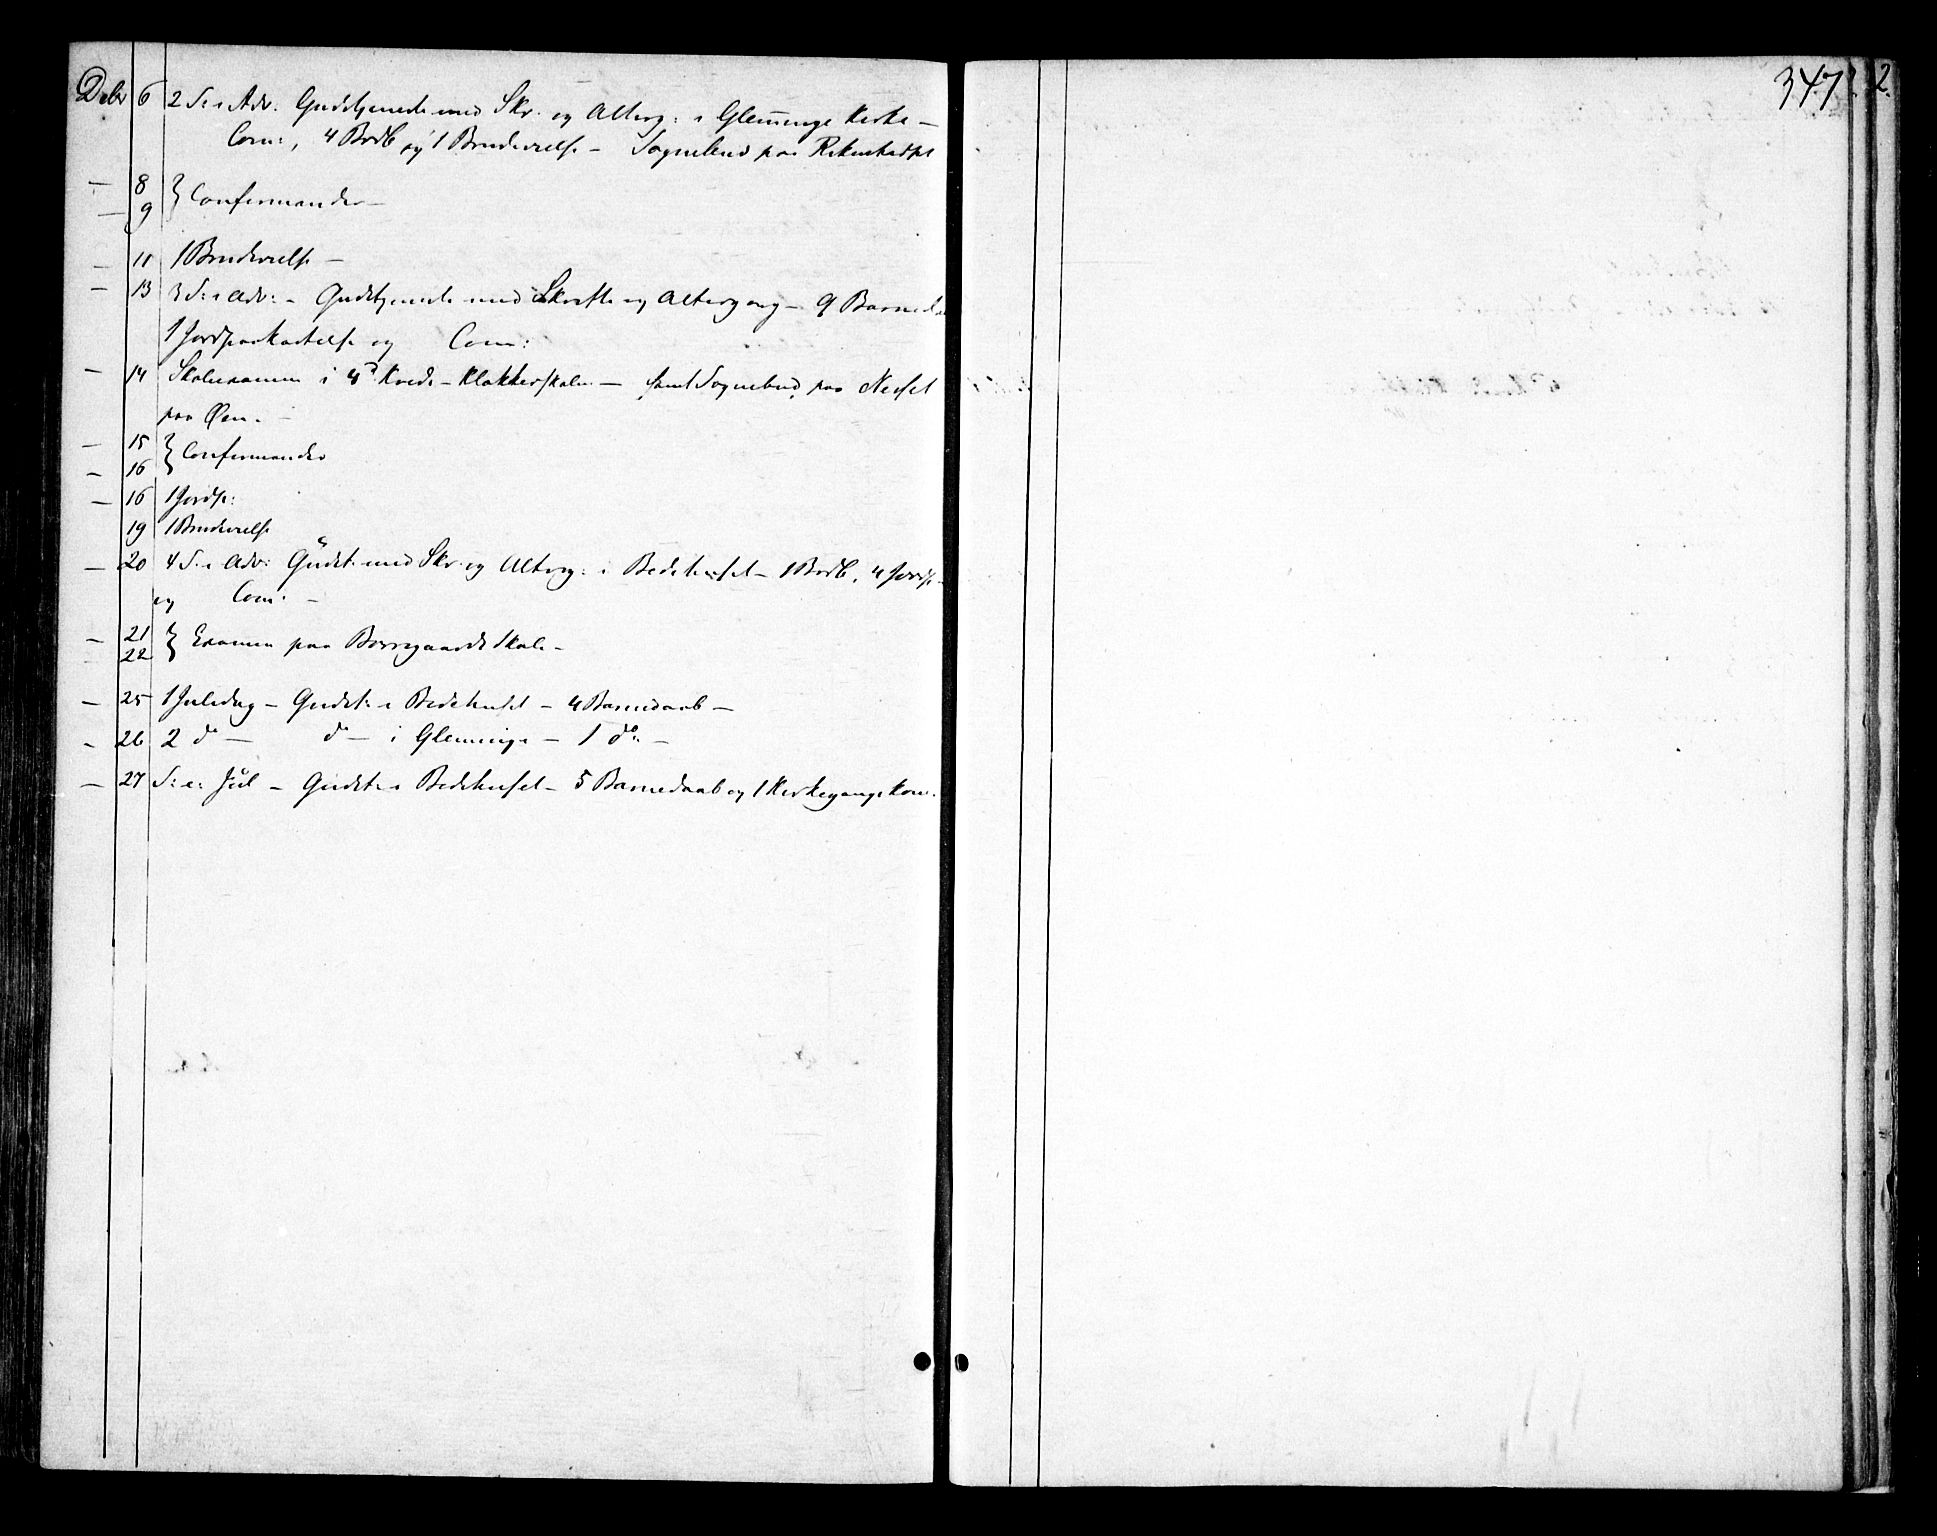 Debr 6 2 S. i Adv: Gudstjeneste med Skr. og Alterg: i Glemminge Kirke –
Com:, 4 Brdb og 1 Brudevielse – Sognebud paa
– 8
– 9 } Confirmander –
– 11 1 Brudevielse –
– 13 3 S: i Adv: – Gudstjeneste med Skrifte og Altergang – 9 Barned
1 Jordpaakastelse og Com:
– 14 Skoleexamen i 4de Kreds – Klokkerskolen – samt Sognebud paa Nesset
paa Øen. –
– 15
– 16 } Confirmander
– 16 1 Jordp:
19 1 Brudevielse
– 20 4 S. i Adv: Gudst. med Skr. og Alterg: i Bedehuset – 1 Brdb, 4 Jordp –
og Com: –
– 21
– 22 } Examen paa Borregaards Skole –
– 25 1 Juledag – Gudst: i Bedehuset – 4 Barnedaab –
– 26 2 do – do – i Glemminge – 1 do: –
– 27 S: e: Jul – Gudst: i Bedehuset – 5 Barnedaab og 1 Kirkegangskone.
347
2.